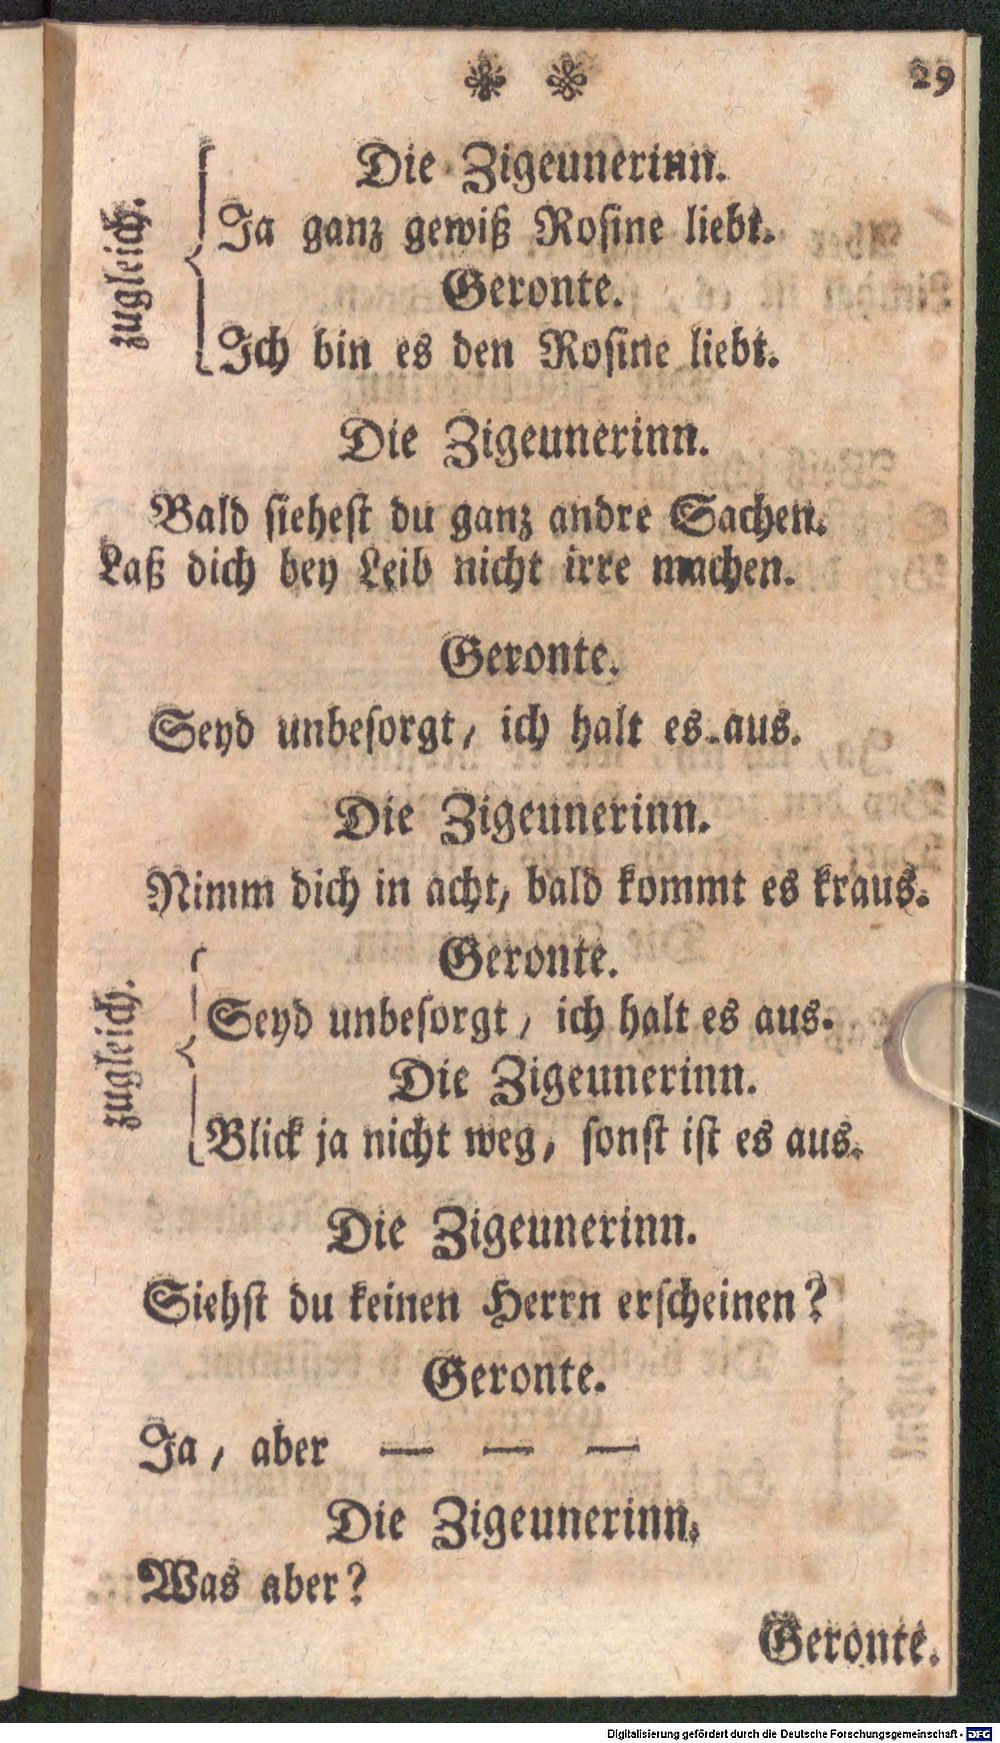 29
Die Zigeunerinn.
zugleich.
Ja ganz gewiß Rosine liebt.
Geronte.
Ich bin es den Rosine liebt.
Die Zigeunerinn.
Bald siehest du ganz andre Sachen.
Laß dich bey Leib nicht irre machen.
Geronte.
Seyd unbesorgt, ich halt es aus.
Die Zigeunerinn.
Nimm dich in acht, bald kommt es kraus.
zugleich.
Geronte.
Seyd unbesorgt, ich halt es aus.
Die Zigeunerinn.
Blick ja nicht weg, sonst ist es aus.
Die Zigeunerinn.
Siehst du keinen Herrn erscheinen?
Geronte.
Ja, aber — — —
Die Zigeunerinn.
Was aber?
Geronte.
Digitalisierung gefördert durch die Deutsche Forschungsgemeinschaft - DFG